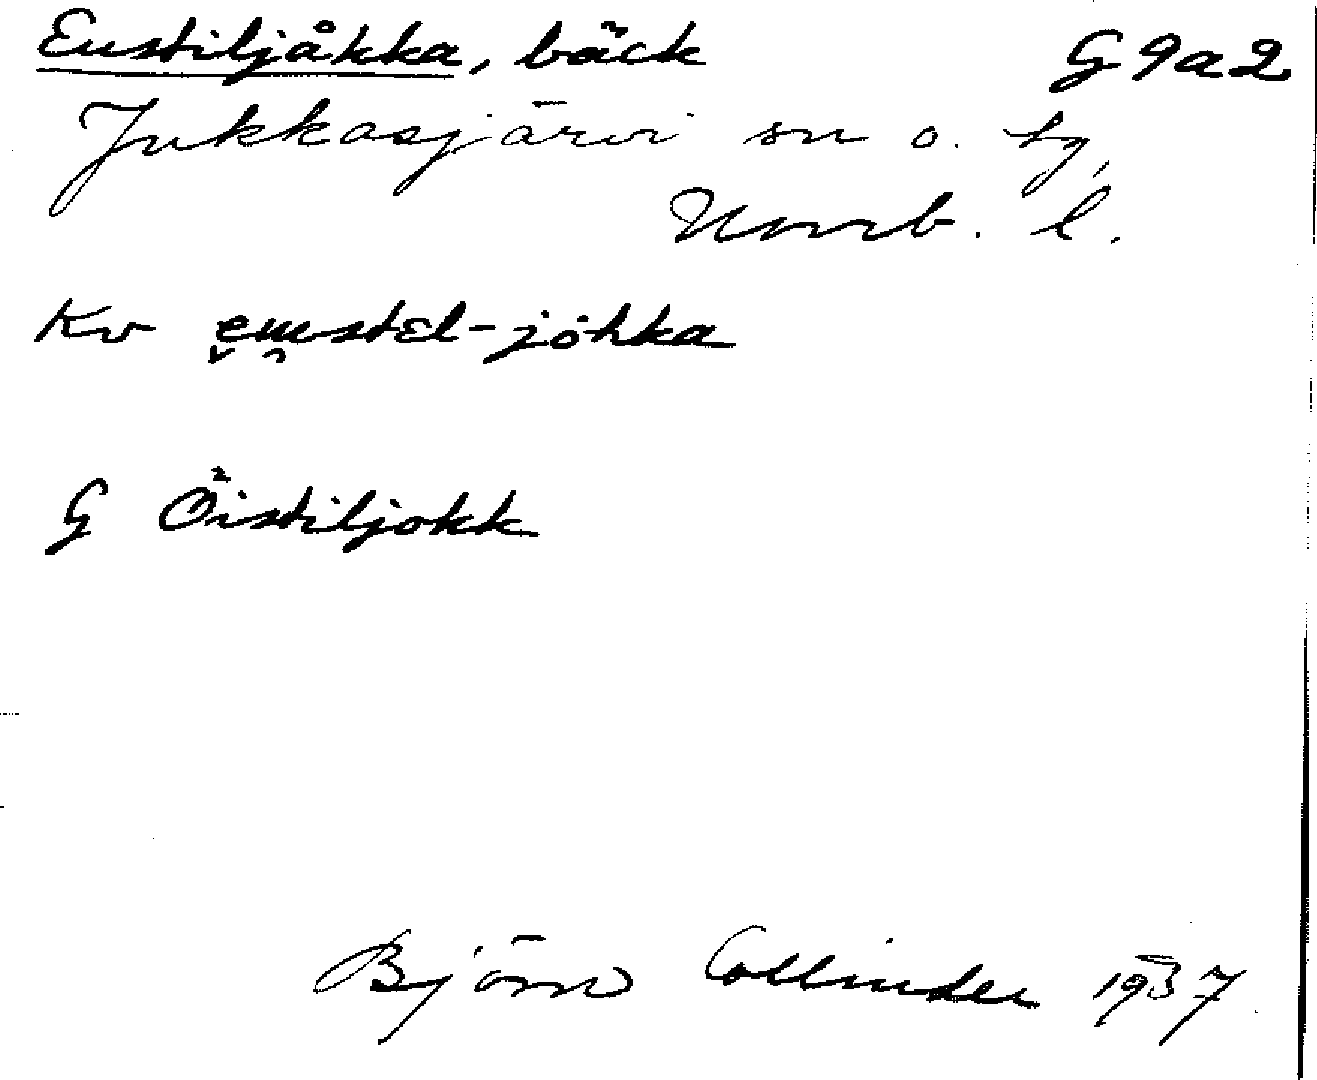 Eustiljåkka, bäck G9a2
Jukkasjärvi sn o. tg,
Norrb. l.
Kv e̬u̯stɛl-jòhka
G Öistiljokk
Björn Collinder 1937